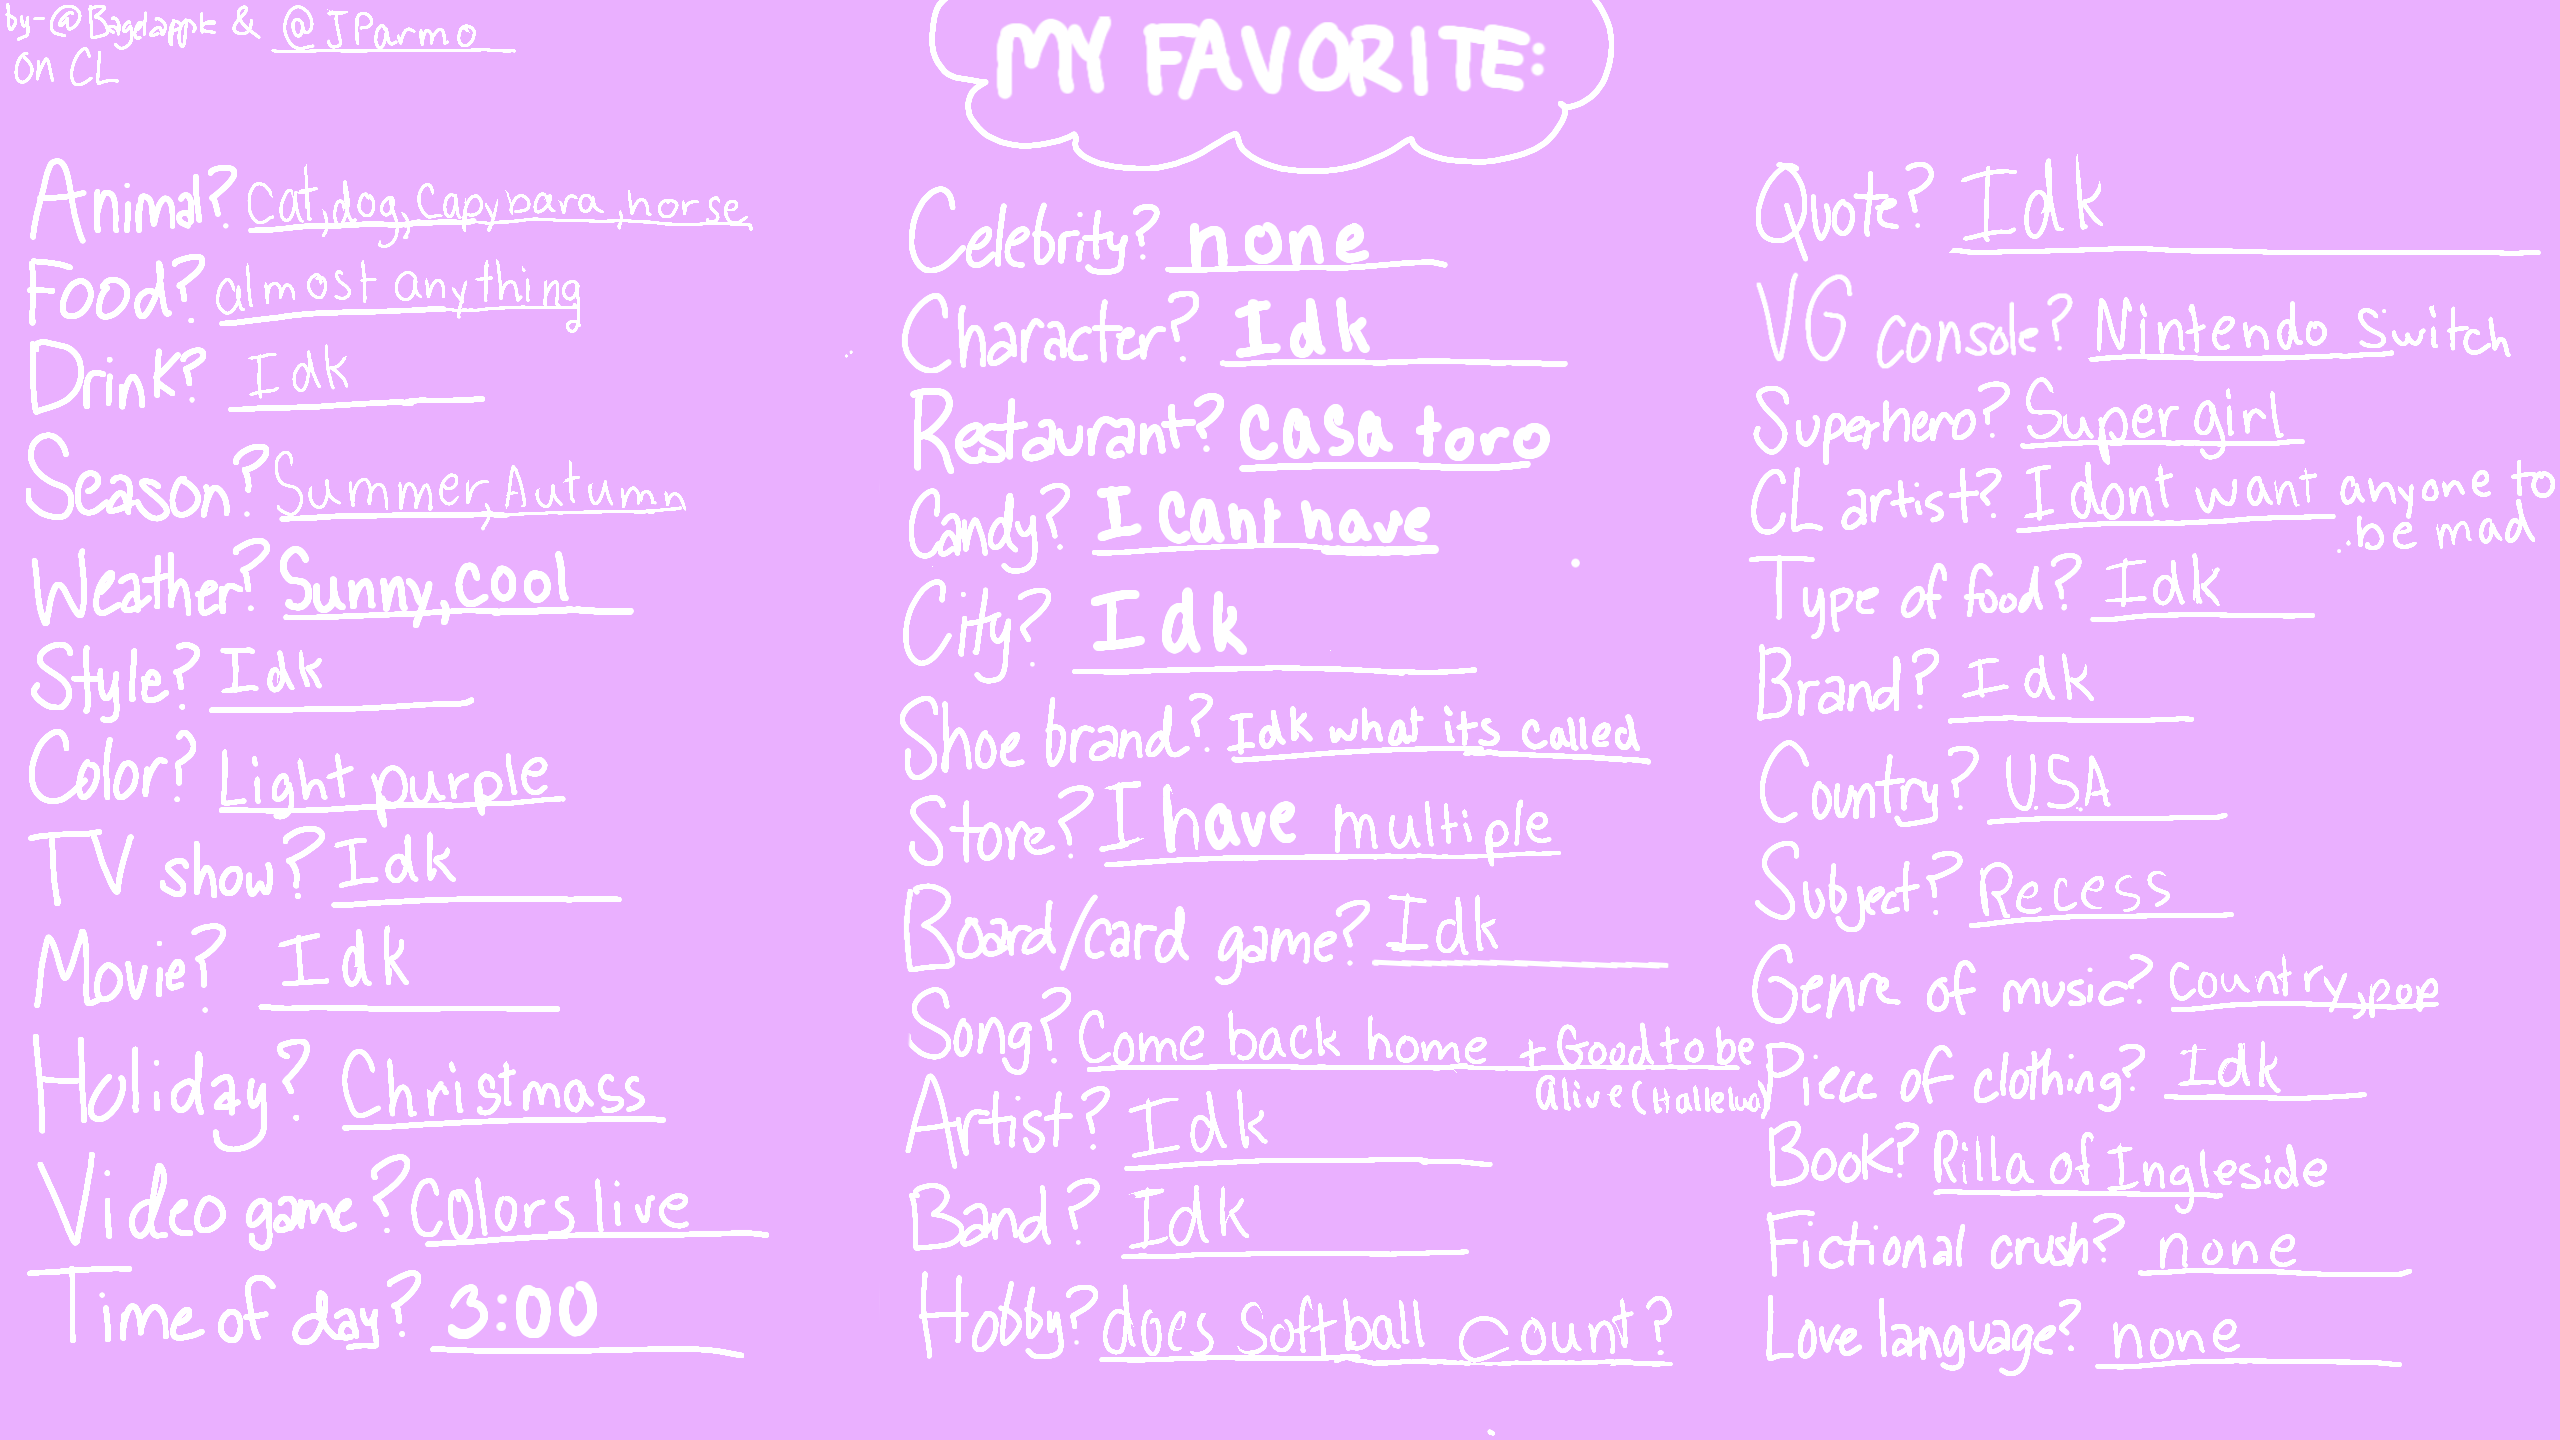 by-@Bagelappk & @JParmo
on CL
MY FAVORITE:
Animal? Cat, dog, Capybara, horse
Food? almost anything
Drink? Idk
Season? Summer, Autumn
Weather? Sunny, cool
Style? Idk
Color? Light purple
TV show? Idk
Movie? Idk
Holiday? Christmass
Video game? Colors live
Time of day? 3:00
Celebrity? none
Character? Idk
Restaurant? casa toro
Candy? I cant have
City? Idk
Shoe brand? Idk what its called
Store? I have multiple
Board/card game? Idk
Song? Come back home + Good to be
alive (Hallelua)
Artist? Idk
Band? Idk
Hobby? does Softball count?
Quote? Idk
VG console? Nintendo Switch
Superhero? Super girl
CL artist? I dont want anyone to
be mad
Type of food? Idk
Brand? Idk
Country? U.S.A
Subject? Recess
Genre of music? Country, pop
Piece of clothing? Idk
Book? Rilla of Ingleside
Fictional crush? none
Love language? none